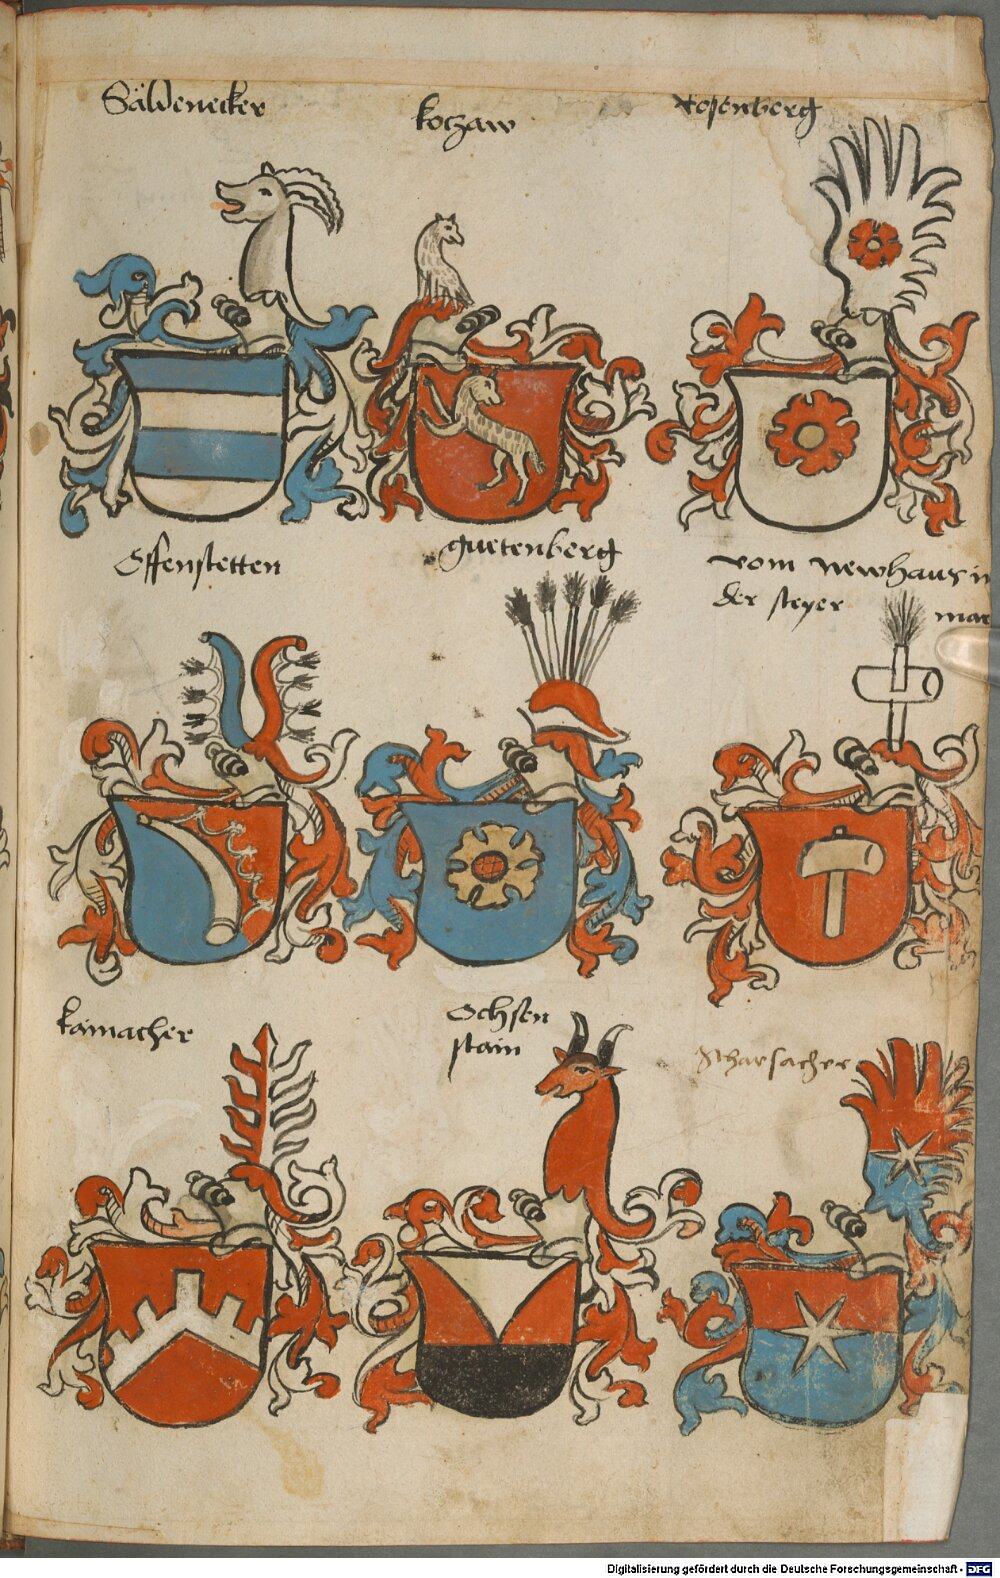 Säldenecker
koczaw
Rosenberg
Offenstetten
guetenberg
vom newhaus in
der steyer
mar
kaimacher
Ochsen
stain
Scharsacher
Digitalisierung gefördert durch die Deutsche Forschungsgemeinschaft - DFG